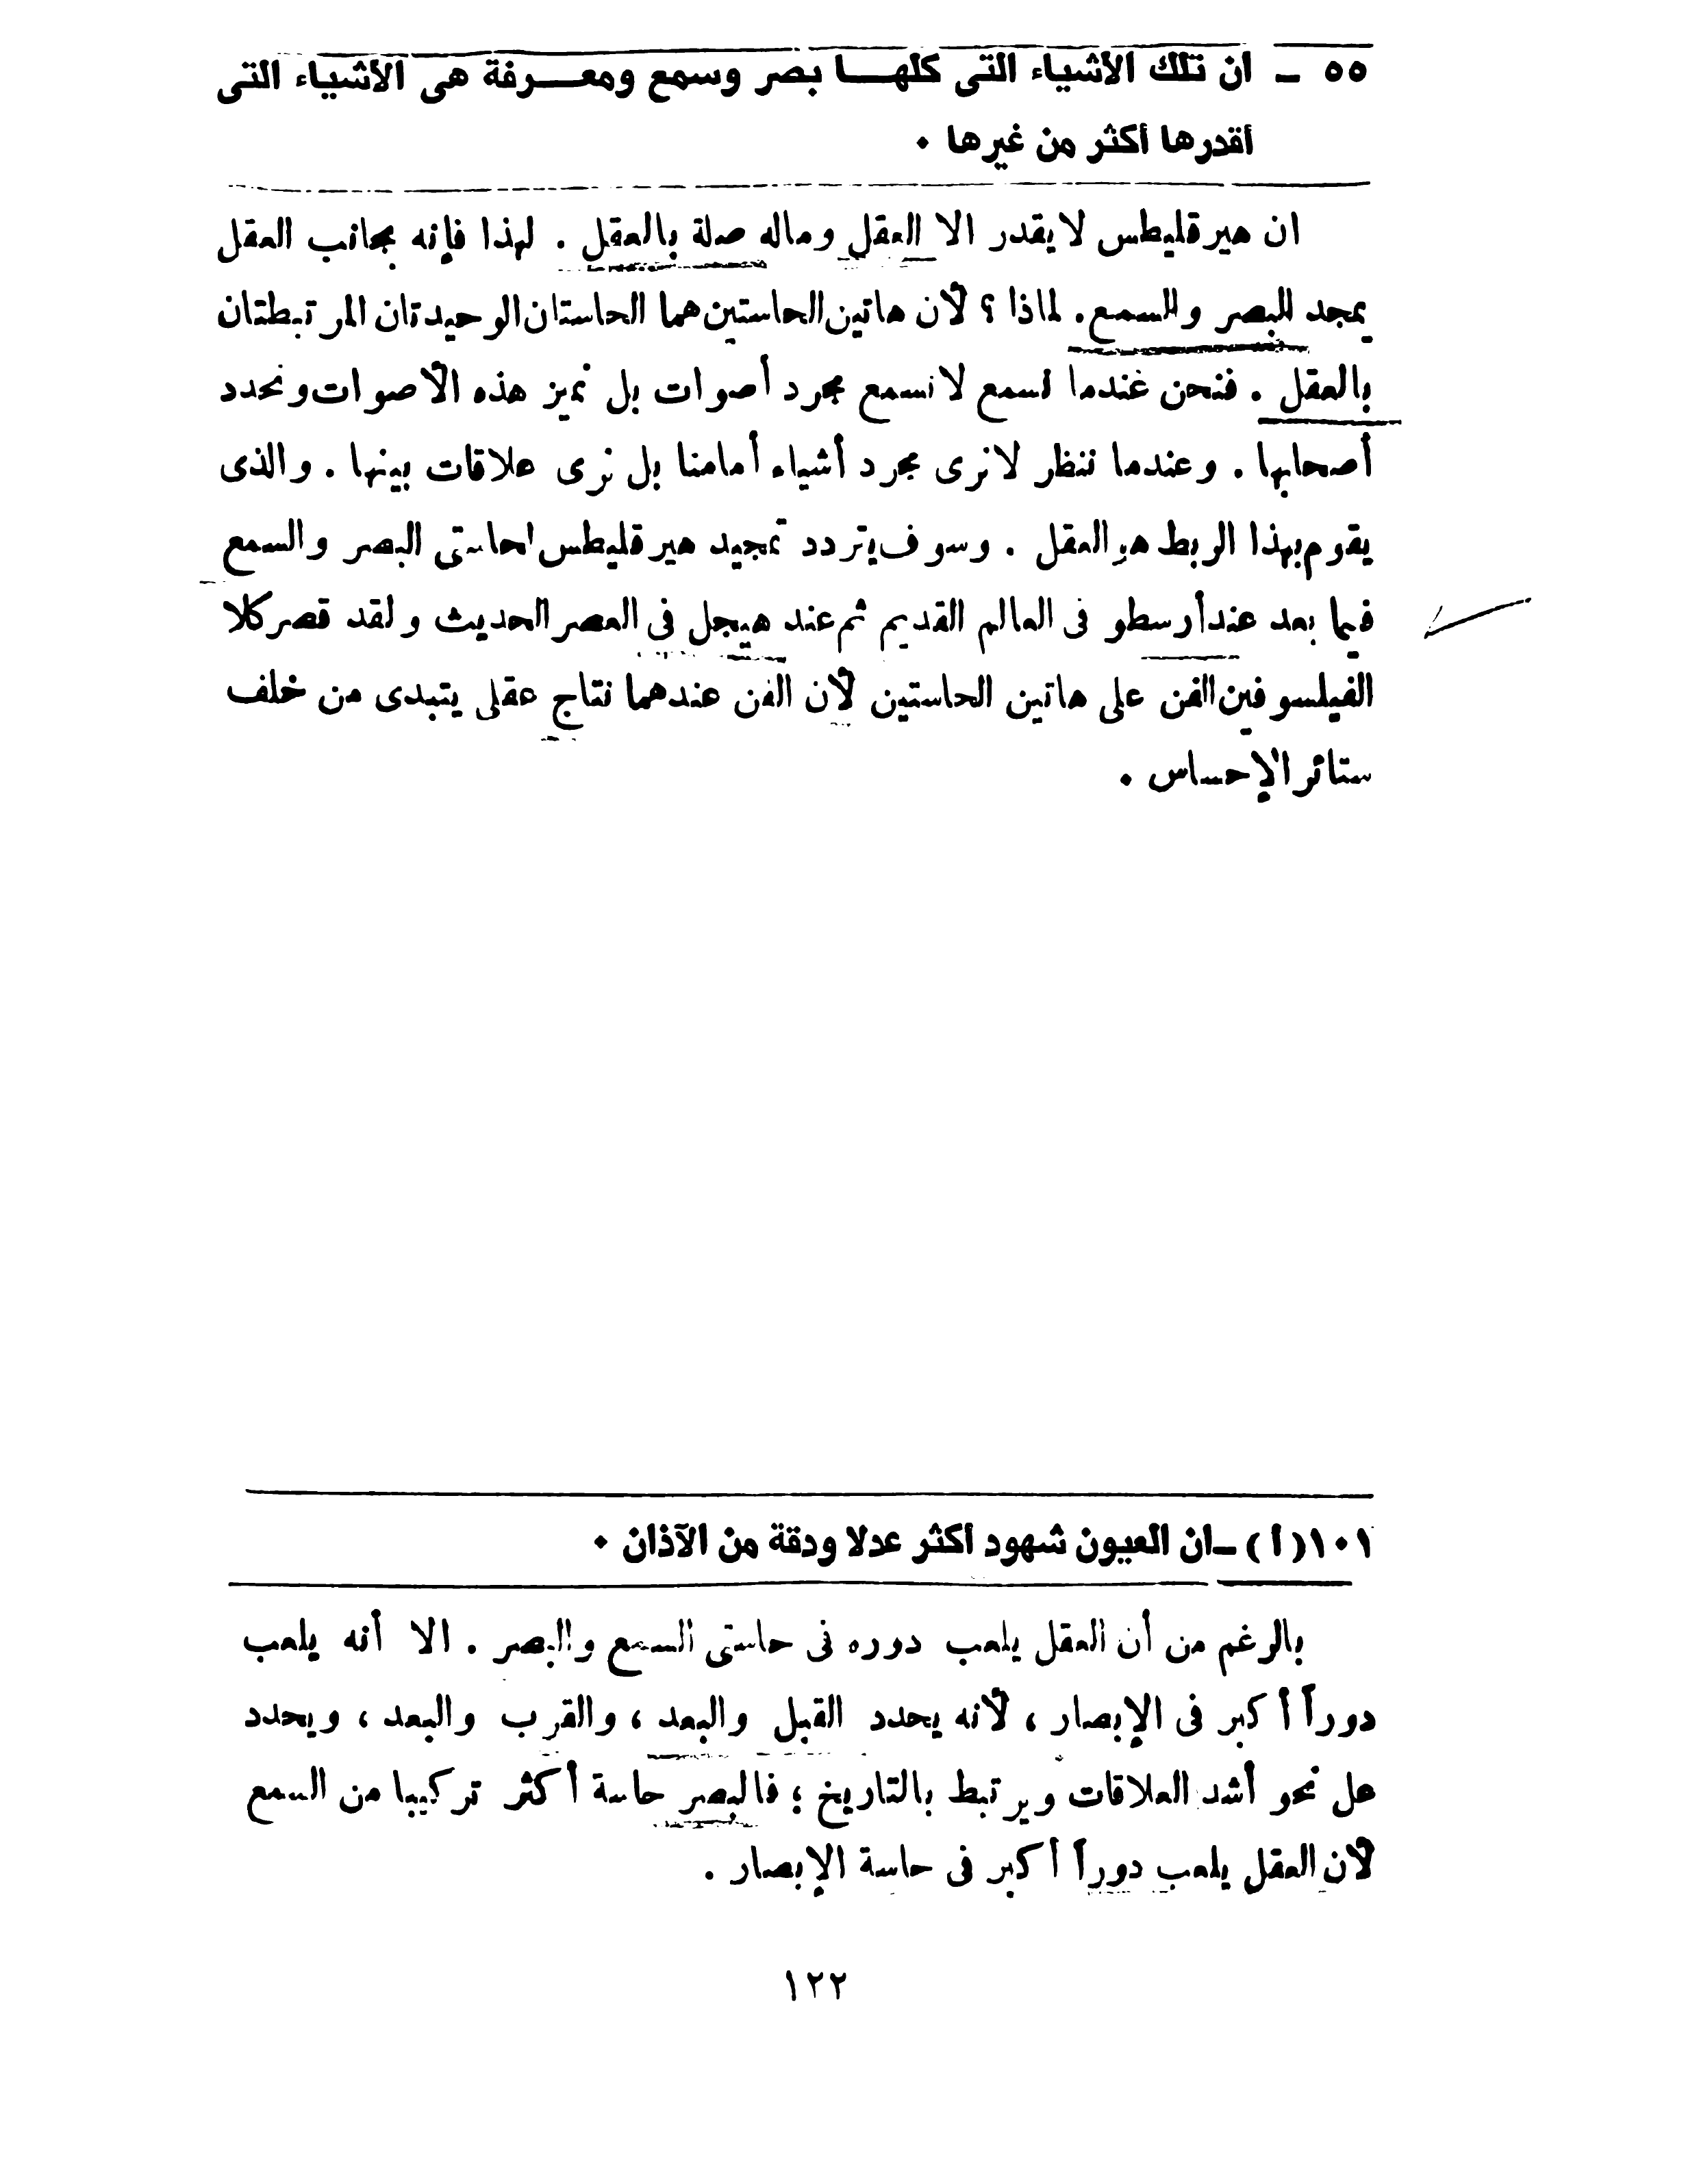 ٥٥ ـ ان تلك الأشياء التى كلهـــا بصر وسمع ومعـــرفة هى الأشياء التى
أقدرها أكثر من غيرها ٠
ان هيرقليطس لا يقدر الا العقل وماله صلة بالعقل . لهذا فإنه بجانب العقل
يمجد البصر والسمع. لماذا ؟ لأن هاتين الحاستين هما الحاستان الوحيدتان المرتبطتان
بالعقل . فنحن عندما نسمع لا نسمع مجرد أصوات بل نميز هذه الأصوات ونحدد
أصحابها . وعندما ننظر لا نرى مجرد أشياء أمامنا بل نرى علاقات بينها . والذى
يقوم بهذا الربط هو العقل . وسوف يتردد تمجيد هيرقليطس لحاستى البصر والسمع
فيما بعد عند أرسطو فى العالم القديم ثم عند هيجل فى العصر الحديث ولقد قصر كلا
الفيلسوفين الفن على هاتين الحاستين لأن الفن عندهما نتاج عقلى يتبدى من خلف
ستائر الإحساس .
١٠١(أ) ـ ان العيون شهود أكثر عدلا ودقة من الآذان ٠
بالرغم من أن العقل يلعب دوره فى حاستى السمع والبصر . الا أنه يلعب
دوراً أكبر فى الإبصار ، لأنه يحدد القبل والبعد ، والقرب والبعد ، ويحدد
على نحو أشد العلاقات ويرتبط بالتاريخ ؛ فالبصر حاسة أكثر تركيبا من السمع
لأن العقل يلعب دوراً أكبر فى حاسة الإبصار .
١٢٢